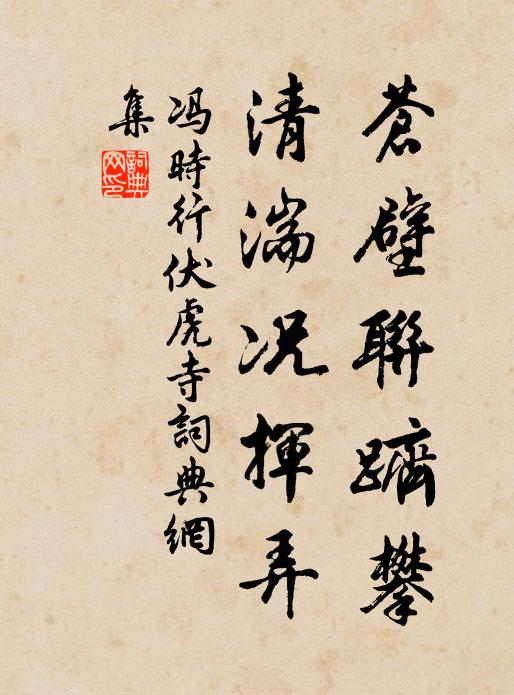 蒼壁聯躋攀
清湍况揮弄
冯時行伏虎寺詞典網
集
詞典網印